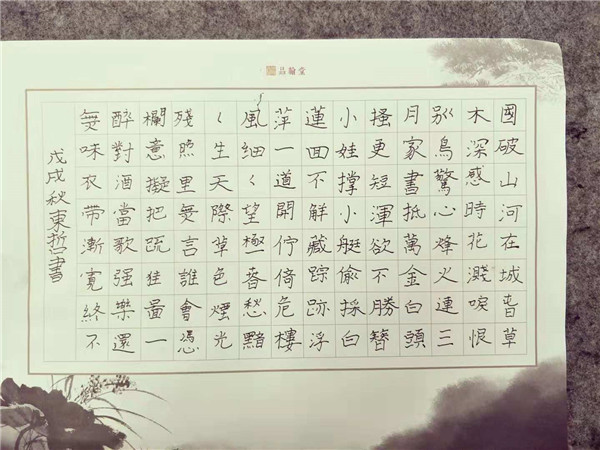 品翰堂
國破山河在城春草
木深感時花濺唳恨
別鳥驚心烽火連三
月家書抵萬金白頭
搔更短渾欲不勝簪
小娃撐小艇偷採白
蓮回不解藏踪跡浮
萍一道開佇倚危樓
風細々望極春愁黯
々生天際草色煙光
殘照里無言誰會憑
欄意擬把疏狂圖一
醉對酒當歌强樂還
無味衣帶漸寬終不
戊戌秋東哲書